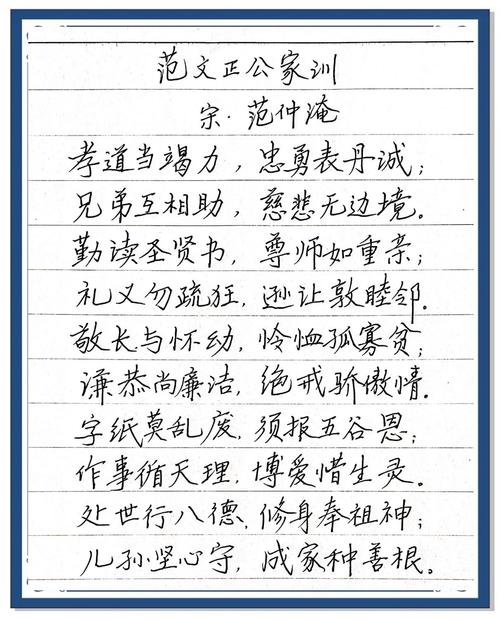 范文正公家训
宋·范仲淹
孝道当竭力，忠勇表丹诚；
兄弟互相助，慈悲无边境。
勤读圣贤书，尊师如重亲；
礼义勿疏狂，逊让敦睦邻。
敬长与怀幼，怜恤孤寡贫；
谦恭尚廉洁，绝戒骄傲情。
字纸莫乱废，须报五谷恩；
作事循天理，博爱惜生灵。
处世行八德，修身奉祖神；
儿孙坚心守，成家种善根。